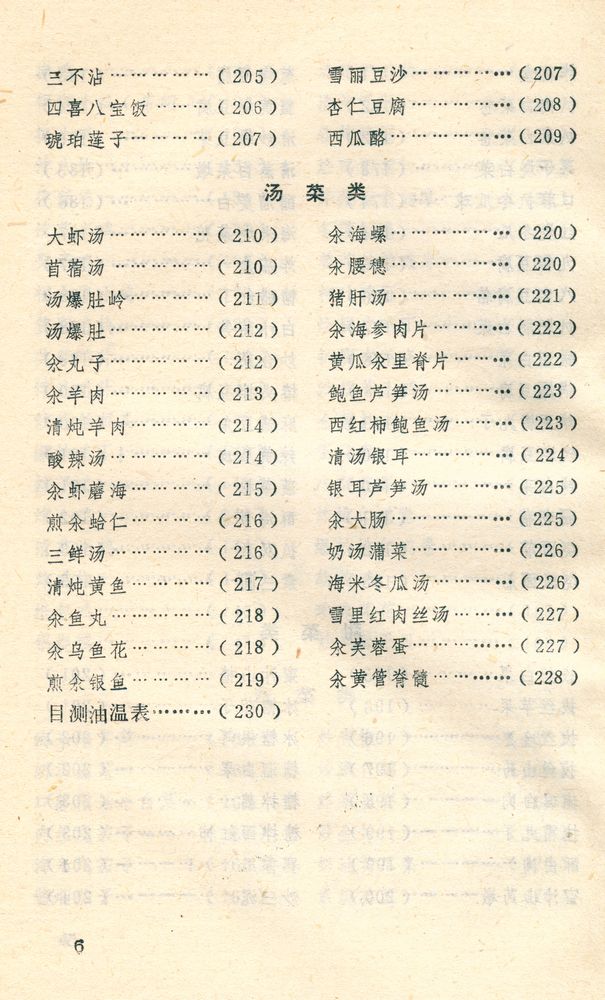 三不沾……………(205)
四喜八宝饭………(206)
琥珀莲子…………(207)
雪丽豆沙…………(207)
杏仁豆腐…………(208)
西瓜酪……………(209)
汤菜类
大虾汤……………(210)
苜蓿汤……………(210)
汤爆肚岭…………(211)
汤爆肚……………(212)
汆丸子……………(212)
汆羊肉……………(213)
清炖羊肉…………(214)
酸辣汤……………(214)
汆虾蘑海…………(215)
煎汆蛤仁…………(216)
三鲜汤……………(216)
清炖黄鱼…………(217)
汆鱼丸……………(218)
汆乌鱼花…………(218)
煎汆银鱼…………(219)
目测油温表………(230)
汆海螺……………(220)
汆腰穗……………(220)
猪肝汤……………(221)
汆海参肉片………(222)
黄瓜汆里脊片……(222)
鲍鱼芦笋汤………(223)
西红柿鲍鱼汤……(223)
清汤银耳…………(224)
银耳芦笋汤………(225)
汆大肠……………(225)
奶汤蒲菜…………(226)
海米冬瓜汤………(226)
雪里红肉丝汤……(227)
汆芙蓉蛋…………(227)
汆黄管脊髓………(228)
6